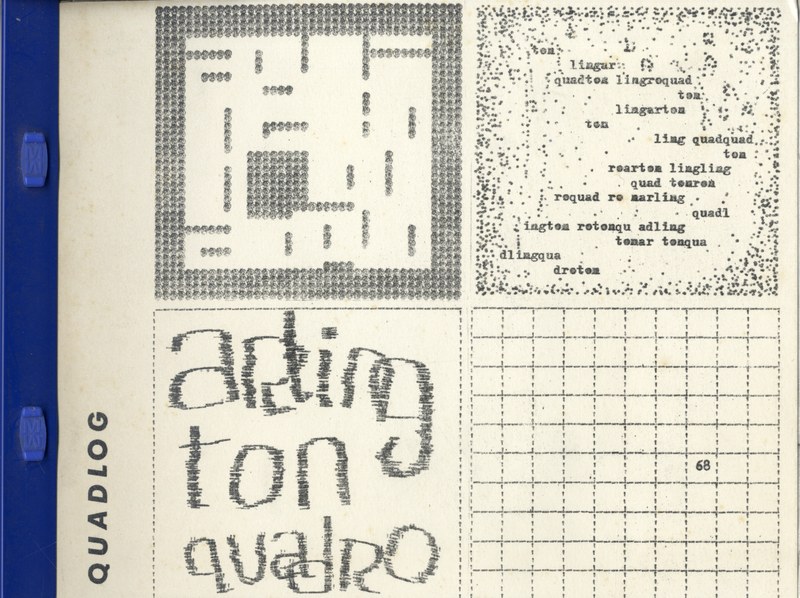 QUADLOG
ton
lingar
quadton lingroquad
ton
lingarton
ton
ling quadquad
ton
roarton lingling
quad tonron
roquad ro narling
quadl
ington rotonqu adling
tonar tonqua
dlingqua
droton
adling
ton
quadRO
68